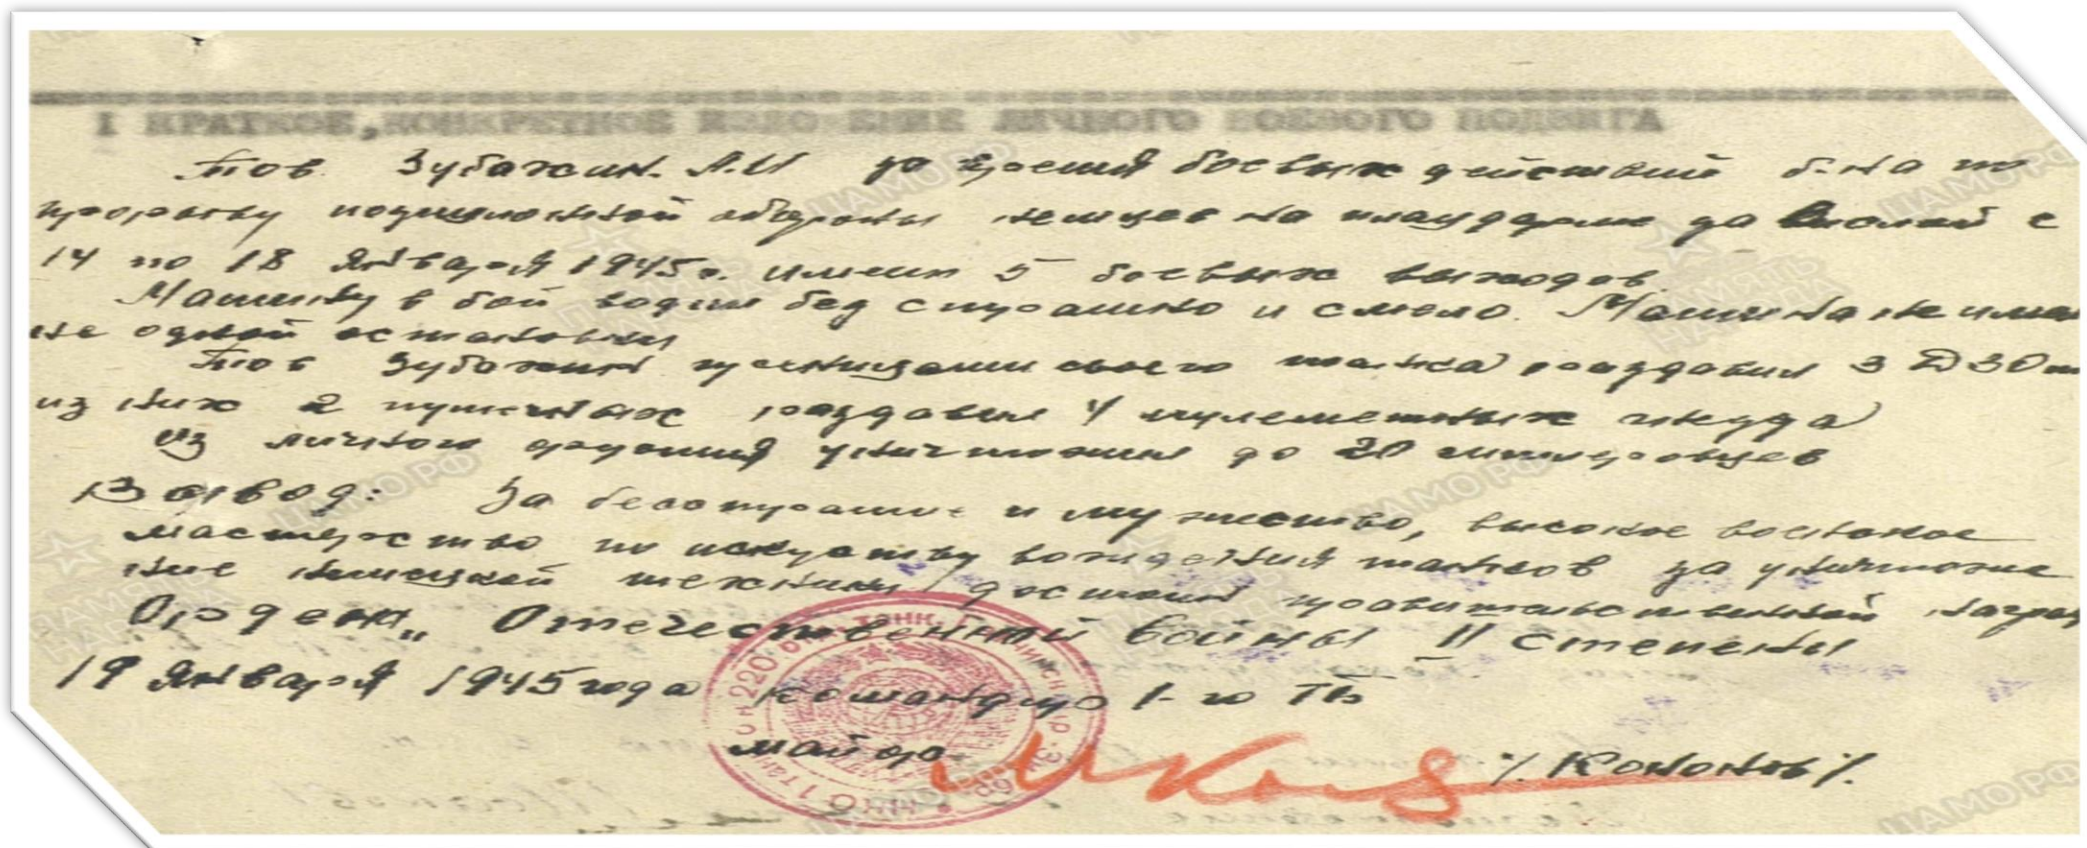 I КРАТКОЕ, КОНКРЕТНОЕ ИЗЛОЖЕНИЕ ЛИЧНОГО БОЕВОГО ПОДВИГА
Тов. Зубахин. А.И за время боевых действий б-на по
прорыву немцев на плацдарме за Вислой с
14 по 18 января 1945г. имеет 5 боевых выходов.
Машину в бой водил бесстрашно и смело. Машина не имел
не одной остановки
Тов Зубахин гусеницами своего танка раздавил 3 ДЗОт
из них 2 пушечных раздавил 4 пулеметных гнезда
Из личного оружия уничтожил до 20 гитлеровцев
Вывод: За бесстрашие и мужество, высокое военное
мастерство по искуству вождения танков за уничтоже
ние немецкой техники достоин правительственной наград
Орден „ Отечественной войны II степени
19 января 1945 года командир 1-го ТБ
майор /. Кононов /.
220 танк.
ЦАМО РФ
ПАМЯТЬ НАРОДА